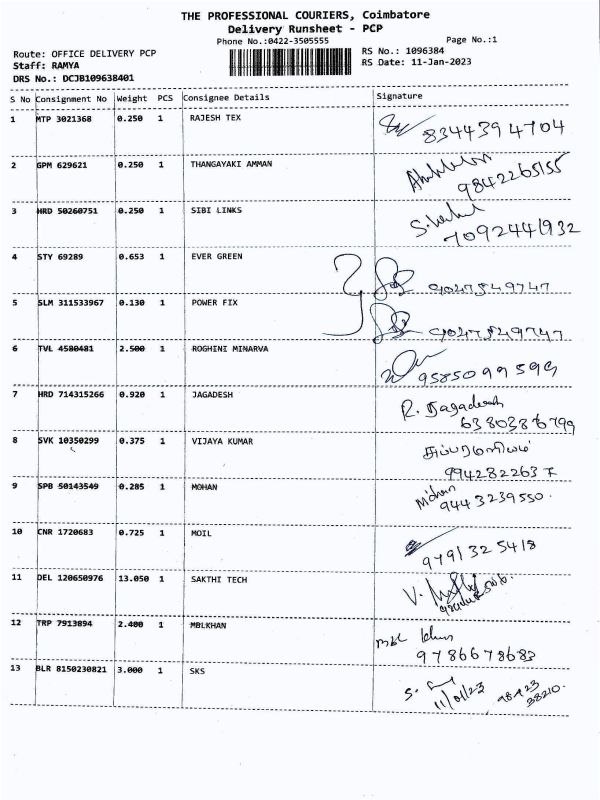 THE PROFESSIONAL COURIERS, Coimbatore
Delivery Runsheet - PCP
Phone No.:0422-3505555
Page No.:1
Route: OFFICE DELIVERY PCP
RS No.: 1096384
Staff: RAMYA
RS Date: 11-Jan-2023
DRS No.: DCJB109638401
S No Consignment No Weight PCS Consignee Details Signature
1 MTP 3021368 0.250 1 RAJESH TEX
8344394704
2 GPM 629621 0.250 1 THANGAYAKI AMMAN
9842265155
3 HRD 50260751 0.250 1 SIBI LINKS
7092441932
4 STY 69289 0.653 1 EVER GREEN
9047549747
5 SLM 311533967 0.130 1 POWER FIX
9047549747
6 TVL 4580481 2.500 1 ROGHINI MINARVA
9585099599
7 HRD 714315266 0.920 1 JAGADESH
R. Jagadeesh
6380386799
8 SVK 10350299 0.375 1 VIJAYA KUMAR
சுப்பரமணியம்
9942822637
9 SPB 50143549 0.285 1 MOHAN
Mohan
9443239550.
10 CNR 1720683 0.725 1 MOIL
9791325418
11 DEL 120650976 13.050 1 SAKTHI TECH
12 TRP 7913894 2.400 1 MBLKHAN
mbl khan
9786678683
13 BLR 8150230821 3.000 1 SKS
11/01/23
98423
38210.